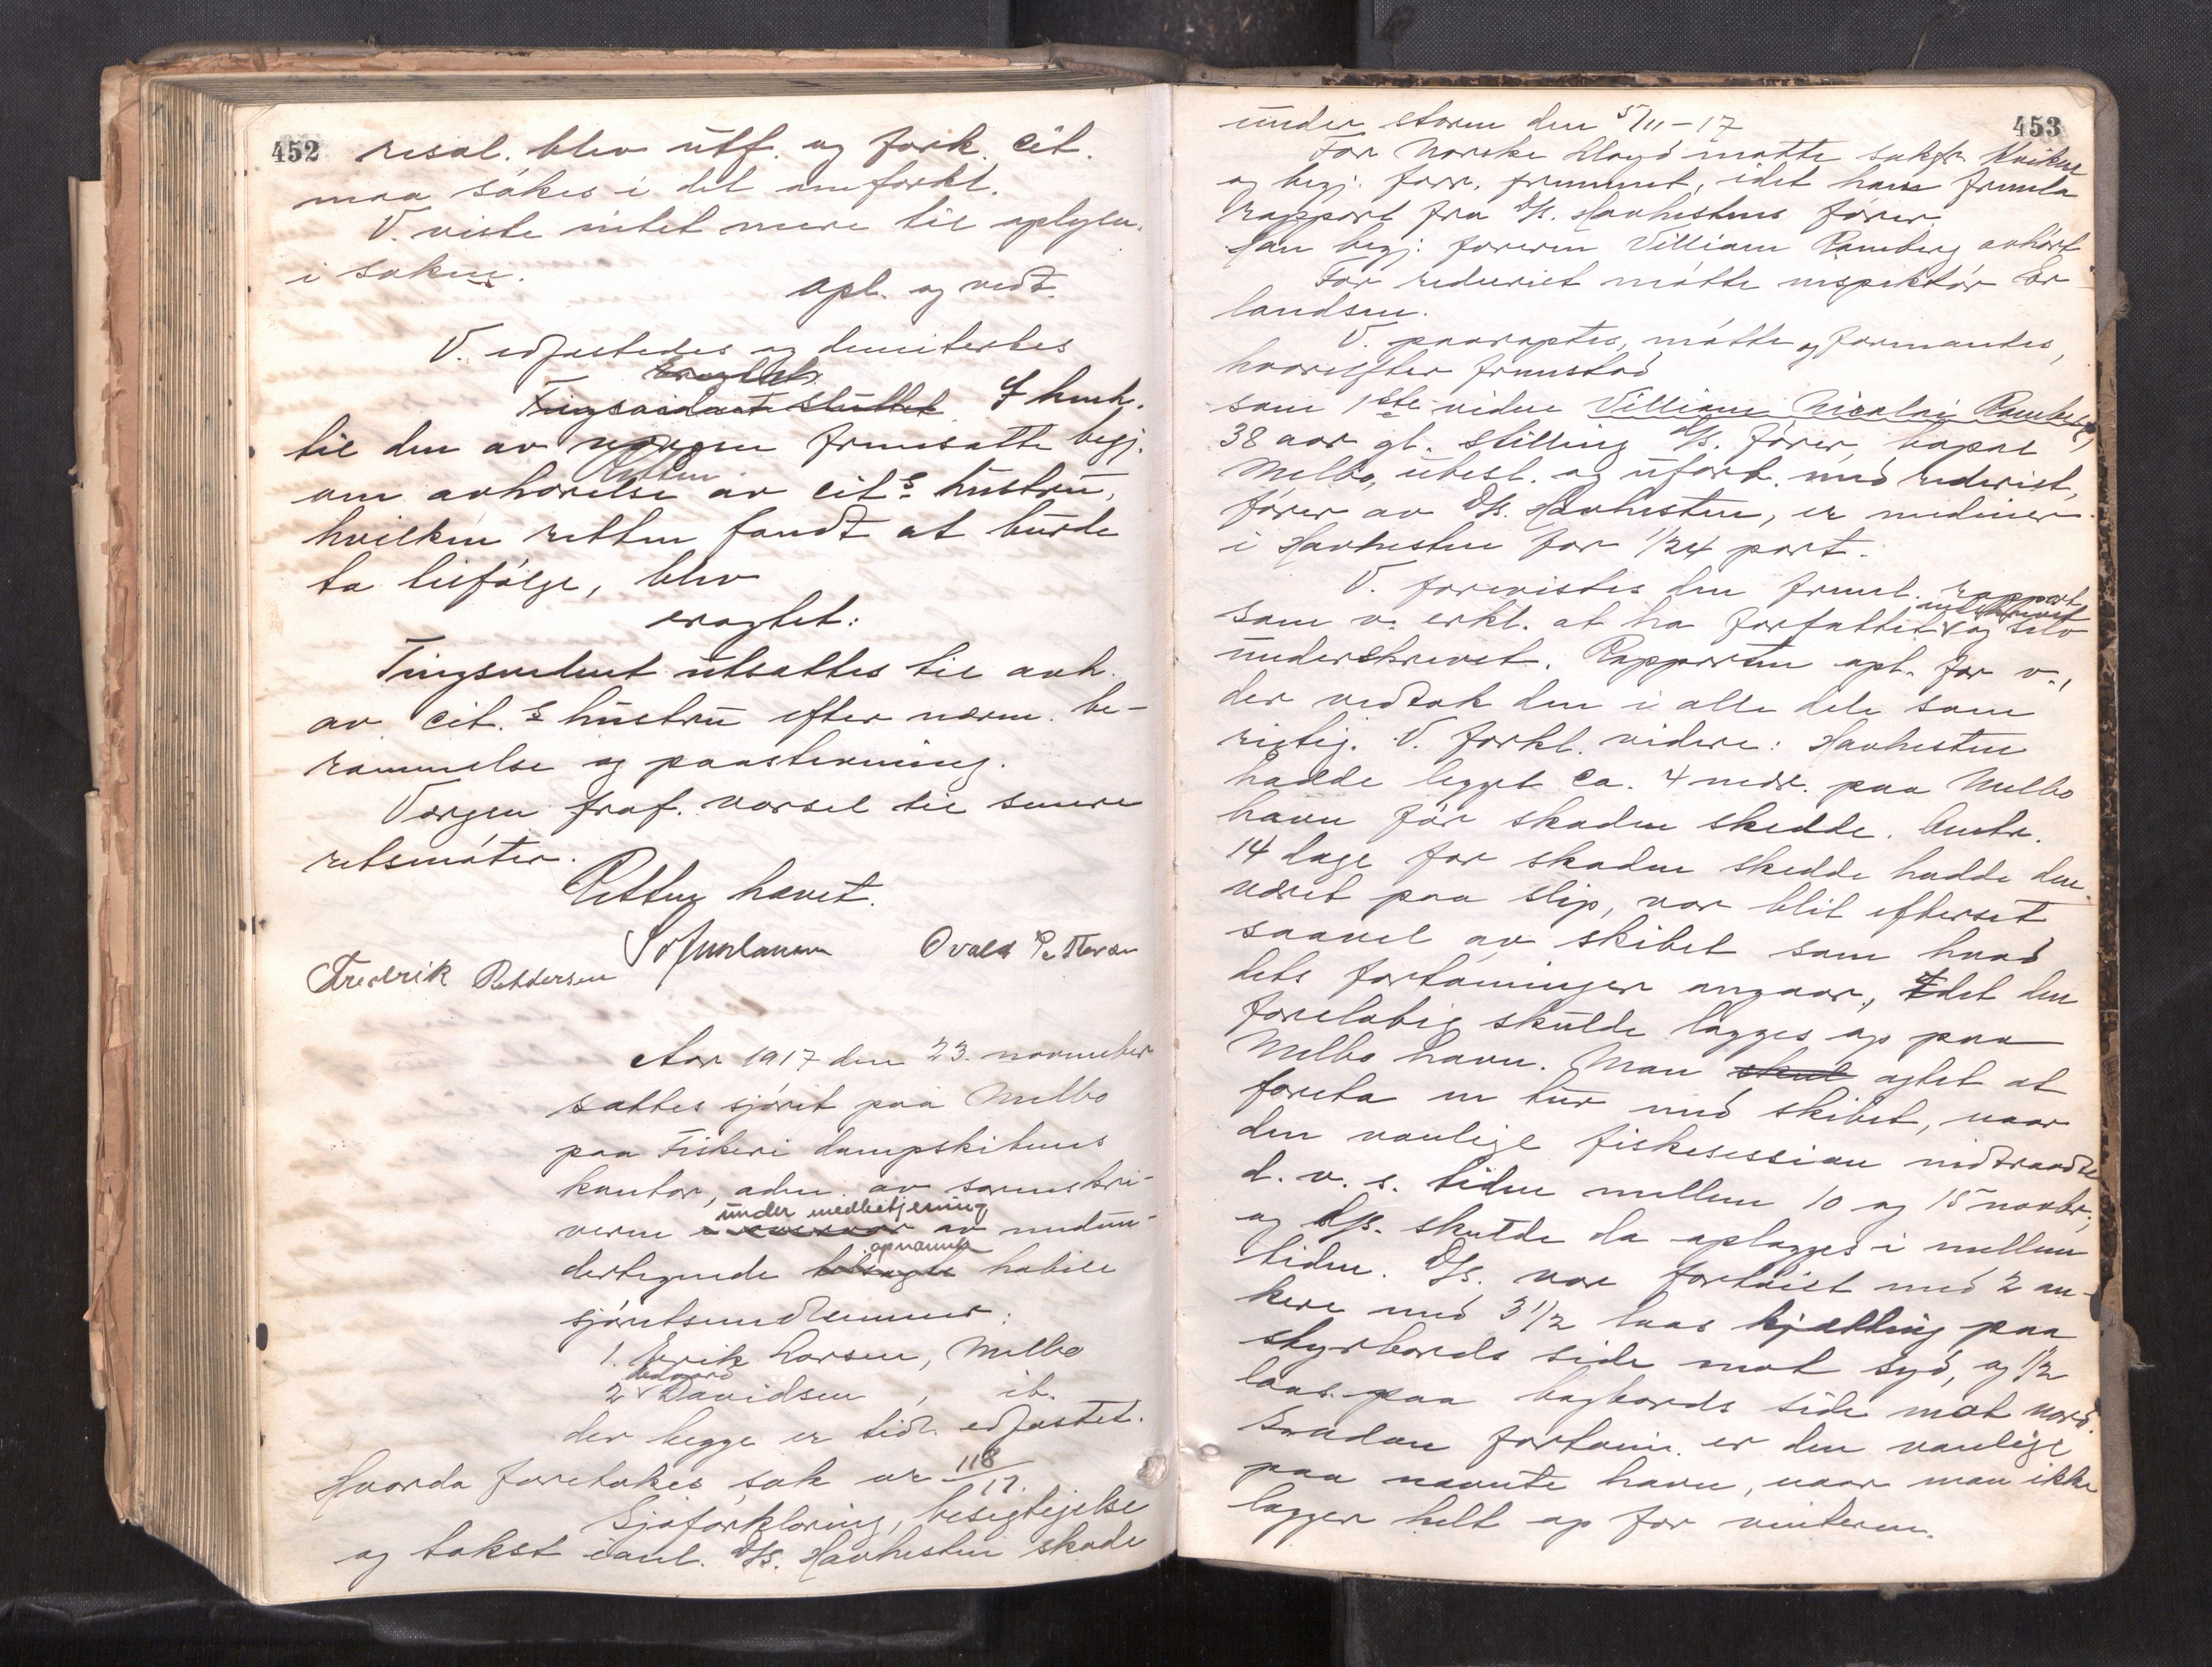 452
resol. blev utf. og fork. cit.
maa søkes i det anførkl.
V. viste intet mere til oplysn.
i saken.
Opl. og vedt.
V. edfæstedes og demitertes
eragtet
Tingsvidnet sluttet I henh.
til den av vergen fremsatte begj.
om avhørelse av cit.s hustru,
hvilken retten fandt at burde
ta tilfølge, blev
eragtet:
Tingsvidnet utsattes til avh.
av cit.s hustru efter nærm. be-
rammelse og paastevning.
Vergen fraf. varsel til senere
retsmøter.
Retten hævet.
Fredrik Pettersen
Aar 1917 den 23. november
sattes sjøret paa Melbo
paa Fiskeri dampskibenes
kontor, adm. av sorenskri-
under medbetjening
veren av nedun-
opnævnte
dertegnede tilsagte habile
sjøretsmedlemmer:
1. Erik Larsen, Melbo
Edvard
2 Davidsen, ib.
der begge er tidl. edfæstet.
Hvorda foretokes sak nr 118/17.
Sjøforklaring, besigtigelse
og takst ovenl. D/s. Havhesten skade
453
under storm den 5/11-17
For Norske Lloyd møtte sakf.
og begj. forr. fremmet, idet han freml.
rapport fra D/s. Havhestens fører.
Han begj. føreren Villiam Ramberg avhørt
For rederiet møtte inspektør Er-
landsen.
V. paaroptes, møtte og formantes,
hvorefter fremstod
som 1ste vidne Villiam Nicolai Ramberg,
38 aar gl. stilling D/s. fører, bopæl
Melbo, ubesl. og ubesv. med rederiet,
fører av D/s. Havhesten, er medeier
i Havhesten for 1/24 part.
V. forevistes den freml. rapport
som v. erkl. at ha forfattet og selv
underskrevet. Rapporten opl. for v.,
der vedtok den i alle dele som
rigtig. V. forkl. videre: Havhesten
hadde ligget ca. 4 mdr. paa Melbo
havn før skaden skedde. Omtr.
14 dage før skaden skedde hadde den
været paa slip, var blit efterset
saavel av skibet som hvad
dets fortøininger angaar, idet den
foreløbig skulde lægges op paa
Melbo havn. Man skul agtet at
foreta en tur med skibet, naar
den vanlige fiskesession indtraadte
d. v. s. tiden mellem 10 og 15 novbr.,
og D/s. skulde da oplægges i mellem
tiden. D/s. var fortøiet med 2 an-
kere med 3 1/2 laas kjætting paa
styrbords side mot syd, og 1/2
laas paa bagbords side mot nord.
Saadan fortøin. er den vanlige
paa nævnte havn, naar man ikke
lægger helt op for vinteren.